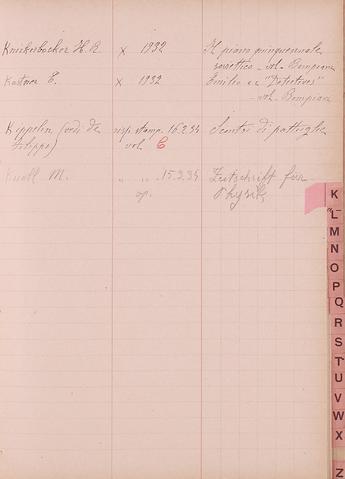 Knickerbocker H. R. x 1932 Il piano quinquennale
sovietico - vol. Bompiani
Kastner E. x 1932 Emilio e i "Detectives"
- vol. Bompiani
Kippelin (vedi de risp. stamp. 16.2.34 Scontri di pattuglie
Filippo) vol. C
Knoll M. " " 15.2.34 Zeitschrift für
op. Physik
K
L
M
N
O
P
Q
R
S
T
U
V
W
X
Z